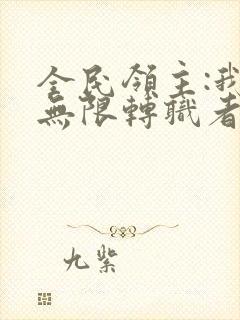 全民領主:我
無限轉職者
九紫